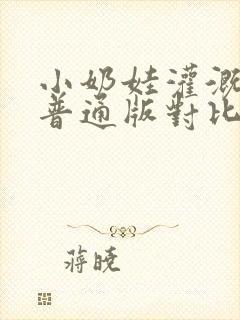 小奶娃灌溉
普通版對比
蔣曉